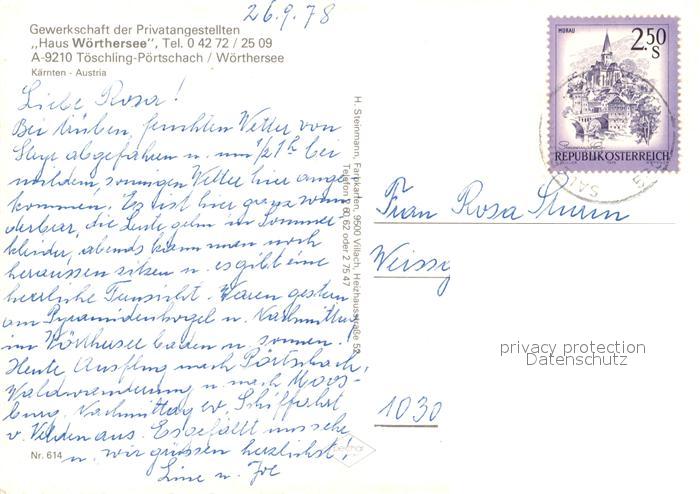 26.9.78
Gewerkschaft der Privatangestellten
„Haus Wörthersee", Tel. 0 42 72 / 25 09
A-9210 Töschling-Pörtschach / Wörthersee
Kärnten - Austria
Liebe Rosa!
Bei trüben, feuchten Wetter von
Steyr abgefahren u. um 1/2 1h bei
mildem, sonnigen Wetter hier ange-
kommen. Es ist hier ganz wun-
derbar, die Leute gehn im Sommer-
kleider, abends kann man noch
heraussen sitzen u. es gibt eine
herrliche Fernsicht. Waren gestern
am Pyramidenkogel u. Nachmittag
im Wörthersee baden u. sonnen.
Heute Ausflug nach Pörtschach,
Waldwanderung u. nach Moos-
burg. Nachmittag ev. Schiffahrt
v. Velden aus. Es gefällt uns sehr
u. wir grüssen herzlichst!
u.
Nr. 614
H. Steinmann, Farbkarten, 9500 Villach, Heizhausstraße 52,
Telefon 2 60 62 oder 2 75 47
MURAU
2.50
S
REPUBLIK ÖSTERREICH
Frau Rosa Sturm
1030
privacy protection
Datenschutz